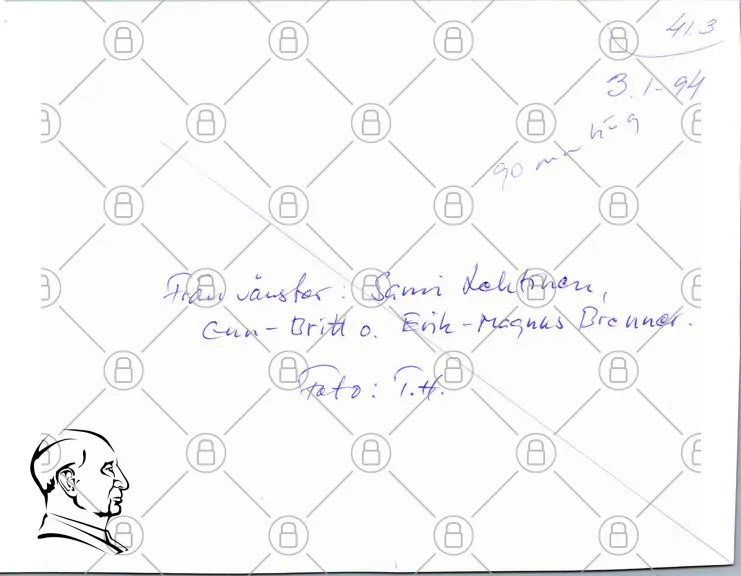 41.3
3.1-94
90 mm hög
Från vänster: Sami Lehtinen,
Gun-Britt o. Erik-Magnus Brenner.
Foto: T.H.